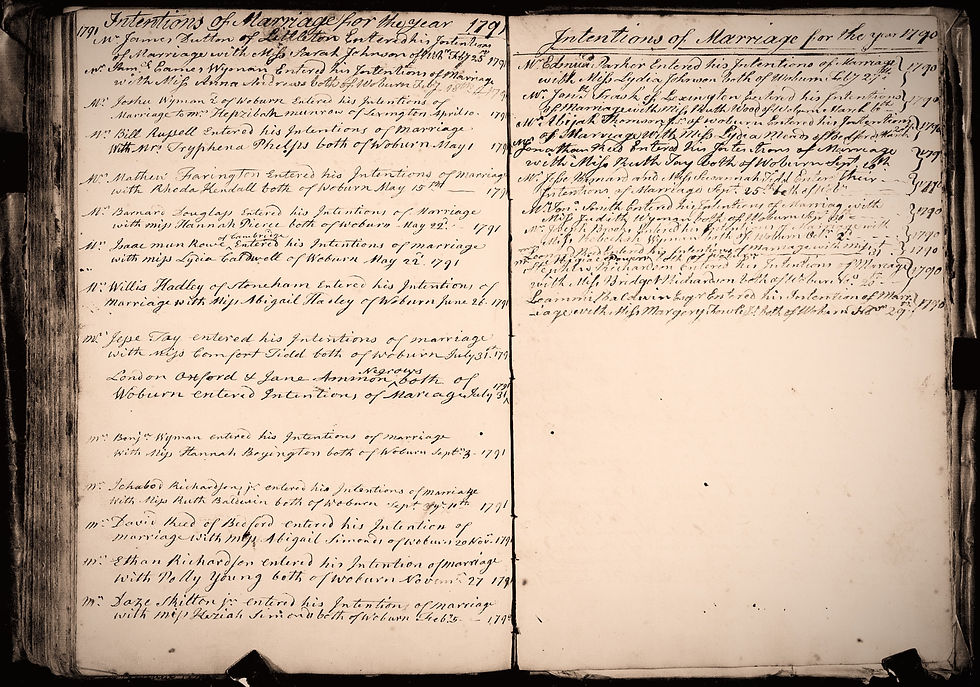 1791 Intentions of Marriage for the year 1791
Mr. James Dutton of Littleton Entered his Intentions
of Marriage with Miss Sarah Johnson of Wobn. Feby 25th 1791
Mr. Saml. Eames Wyman Entered his Intentions of Marriage
with Miss Anna Andrews both of Woburn Feby.
Mr. Joshu Wyman 2d of Woburn Entered his Intentions of
Marriage to Mrs Hepzibah munrow of Lexington April 10. 1791
Mr. Bill Russell Entered his Intentions of Marriage
With Mrs Tryphena Phelps both of Woburn May 1 179
Mr. Mathew Farington Entered his Intentions of Marriage
with Rhoda Kendall both of Woburn May 15th — 179
Mr. Barnard Douglass Entered his Intentions of Marriage
with miss Hannah Pierce both of Woburn May 22d. 1791
of Cambridge
Mr. Isaac mun Row Entered his Intentions of marriage
with miss Lydia Caldwell of Woburn May 22d. 1791
Mr. Willis Hadley of Stoneham Entered his Intentions of
Marriage with Miss Abigail Hadley of Woburn June 26. 1791
mr. Jese Tay entered his Intentions of marriage
with miss Comfort Tidd both of Woburn July 31st. 179
Negroys
London Oxford & Jane Ammon, both of 1791
Woburn entered Intentions of Mariage July 31
mr. Benjn Wyman entered his Intentions of marriage
with Miss Hannah Boyington both of Woburn Septr. 3. 1791
mr. Ichabod Richardson, jr. entered his Intentions of mariage
with Miss Ruth Baldwin both of Woburn Sept. 11th 1791
mr. David Reed of Bedford entered his Intention of
marriage with miss Abigail Simonds of Woburn 20 Nov. 179
mr. Ethan Richardson entered his Intention of marriage
with Polly Young both of Woburn Novemr. 27 179
mr. Daze Skilton jr. entered his Intention, of marriage
with miss Keziah Simond both of Woburn Feb. 5 — 179
Intentions of Marriage for the year 1790
Mr. Edmund Parker Entered his Intentions of Marriage
with Miss Lydia Johnson both of Woburn Feby 27th 1790
Mr. Jonth. Trask of Lexington Entered his Intentions
of Marriage with Miss Ruth Wood of Woburn March 6th 1790
Mr. Abijah Thomson jr. of woburn Entered his Intentions
of Marriage With Miss Lydia Meeds of Bedford
Jonathan Reed Entered his Intentions of Marriage
with Miss Ruth Tay both of Woburn Sept.
Mr. Jesse and Miss Susannah Tidd Enter their
Intentions of Marriage Sept. 25th both of
Mr. Smith Entered his Intentions of Marriag with
Miss Judith Wyman both of Woburn 1790
Mr. Joseph Entered his Intentions of
Miss Wyman both of Woburn Oct. 2d 1790
Intentions of marriage with miss 1790
Stephen Richardson Entered his Intentions of Mariage
with Miss Bridget Richardson both of Woburn 1790
Loammi Baldwin Esqr Entered his Intention of Marr-
-iage with Miss Margery Fowle both of Woburn 29 1790